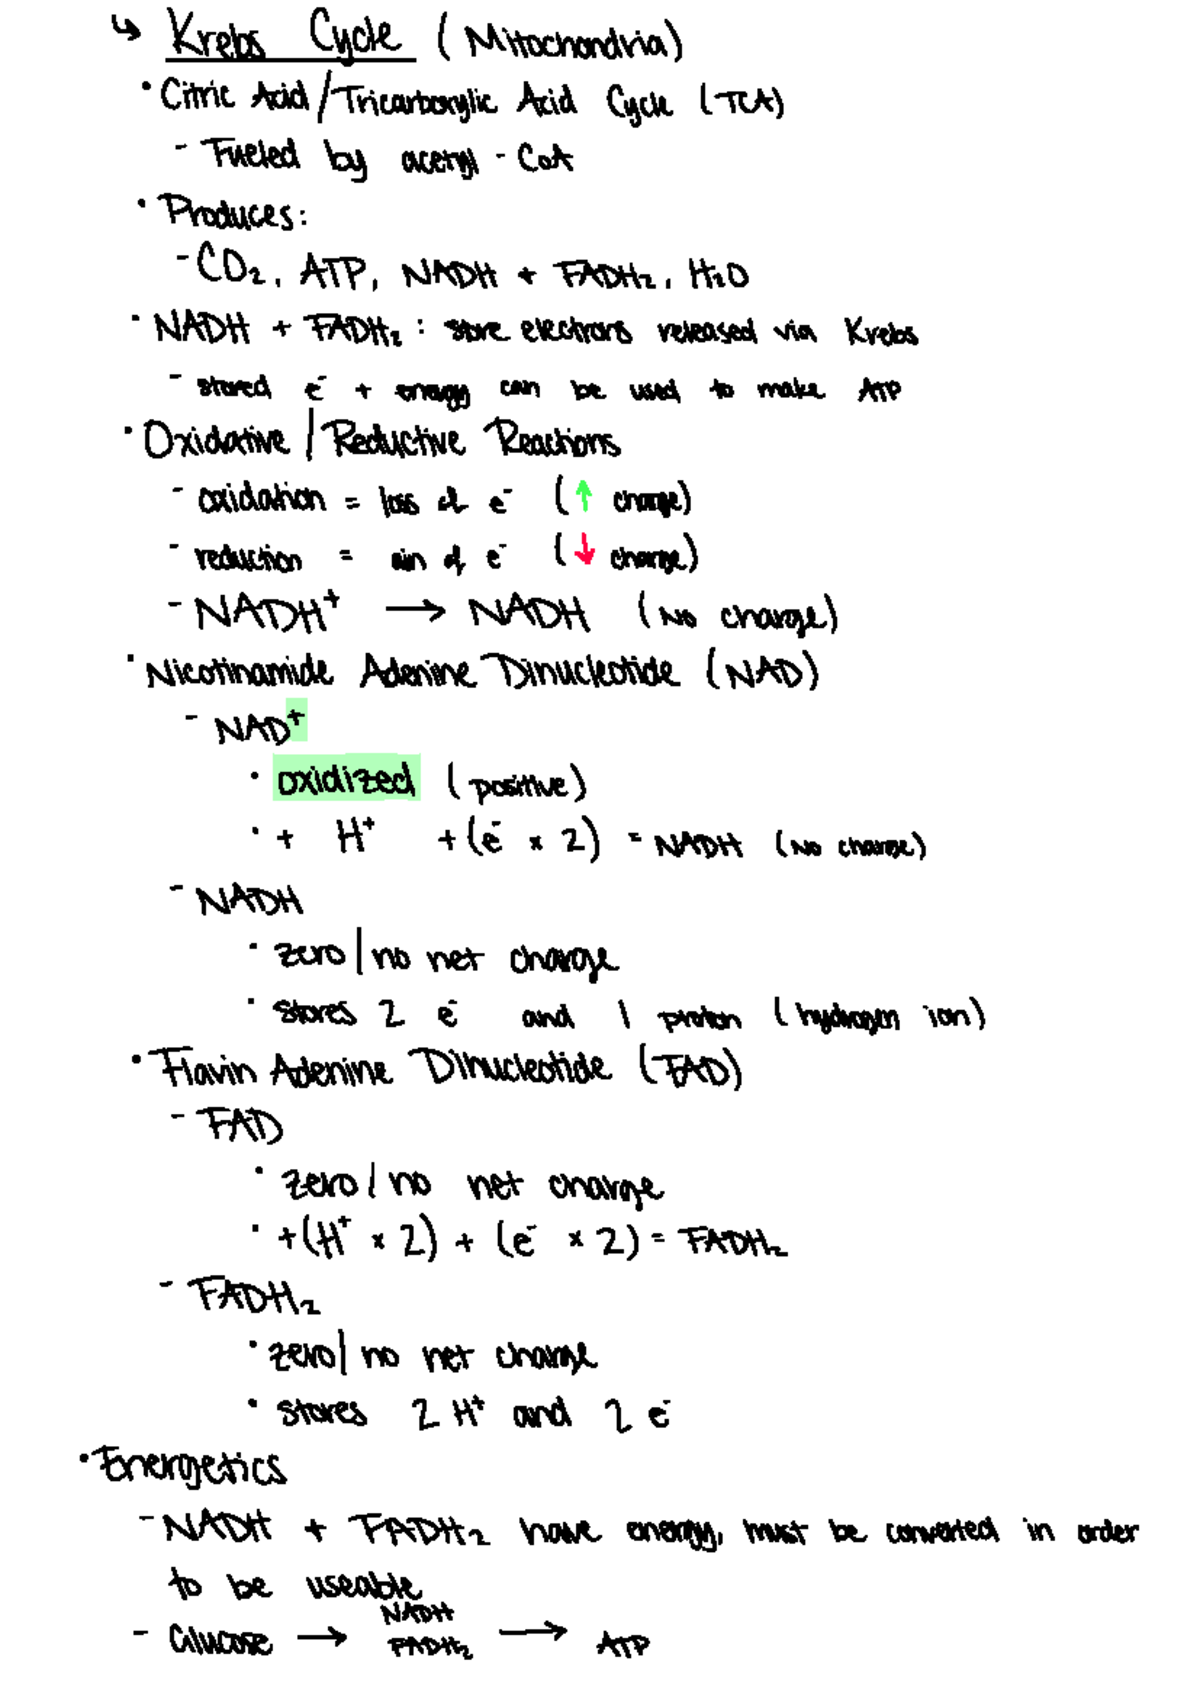 ↳ Krebs Cycle (Mitochondria)
• Citric Acid/Tricarboxylic Acid Cycle (TCA)
- Fueled by acetyl-CoA
• Produces:
- CO₂, ATP, NADH + FADH₂, H₂O
• NADH + FADH₂ : store electrons released via Krebs
- stored e⁻ + energy can be used to make ATP
• Oxidative / Reductive Reactions
- oxidation = loss of e⁻ (↑ charge)
- reduction = ain of e⁻ (↓ charge)
- NADH⁺ → NADH (No charge)
• Nicotinamide Adenine Dinucleotide (NAD)
- NAD⁺
• oxidized (positive)
• + H⁺ + (e⁻ x 2) = NADH (No charge)
- NADH
• zero/no net charge
• stores 2 e⁻ and 1 proton (hydrogen ion)
• Flavin Adenine Dinucleotide (FAD)
- FAD
• zero/no net charge
• +(H⁺ x 2) + (e⁻ x 2) = FADH₂
- FADH₂
• zero/no net charge
• stores 2 H⁺ and 2 e⁻
• Energetics
- NADH + FADH₂ have energy, must be converted in order
to be useable
NADH
- Glucose → FADH₂ → ATP